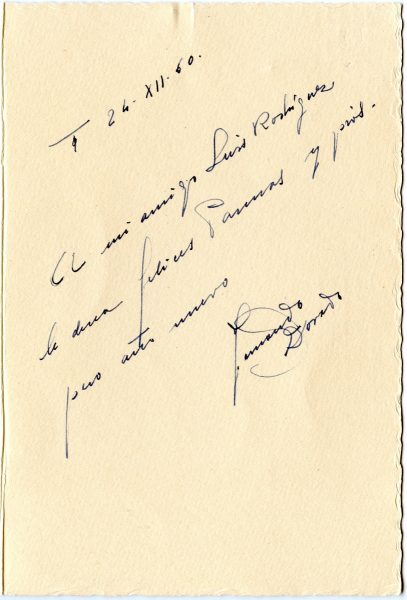 24-XII-60.
A mi amigo Luis Rodriguez
le desea felices Pascuas y prós-
pero año nuevo
Fernando
Dorado